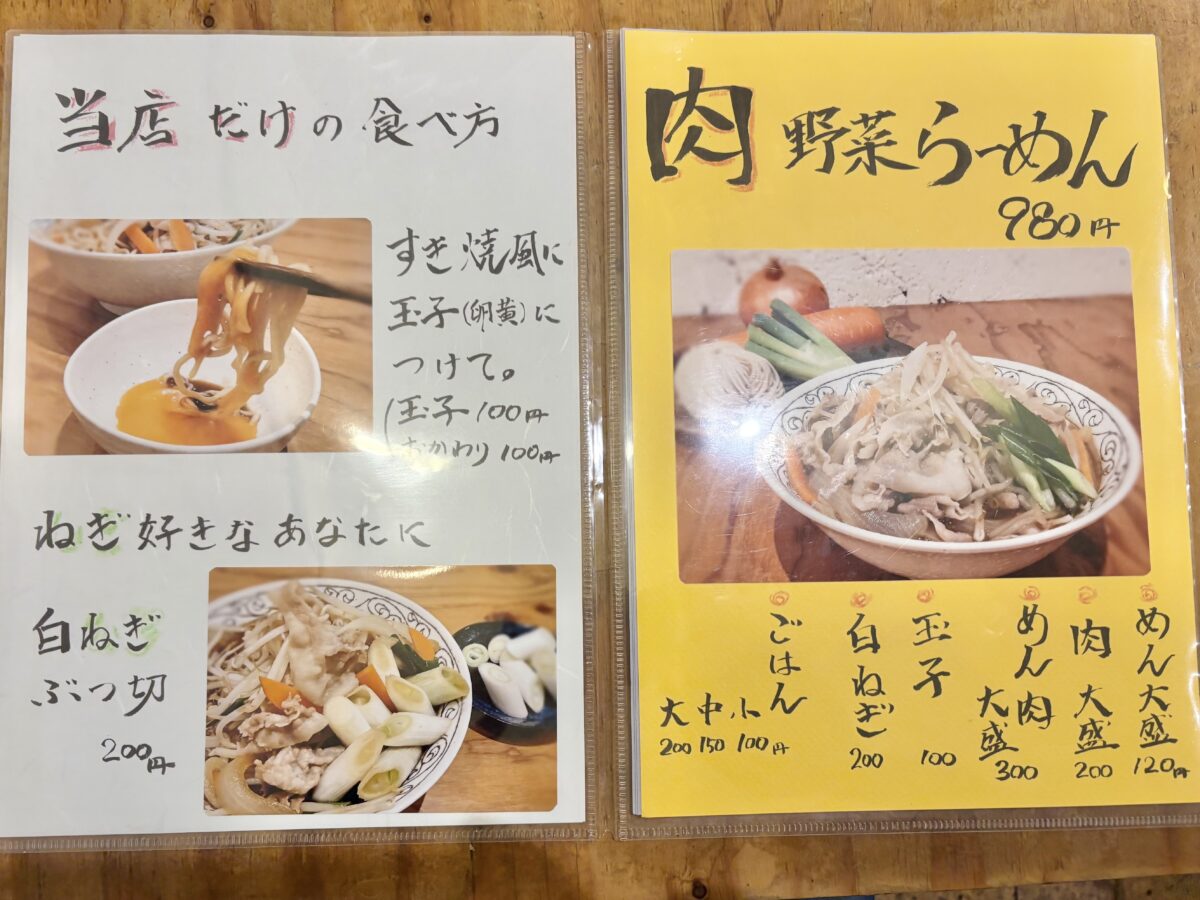 当店だけの食べ方
すき焼風に
玉子(卵黄)に
つけて。
玉子 100円
おかわり 100円
ねぎ好きなあなたに
白ねぎ
ぶつ切
200円
肉野菜らーめん
980円
めん大盛 120円
肉大盛 200
めん肉大盛 300
玉子 100
白ねぎ 200
ごはん
小 100円
中 150
大 200